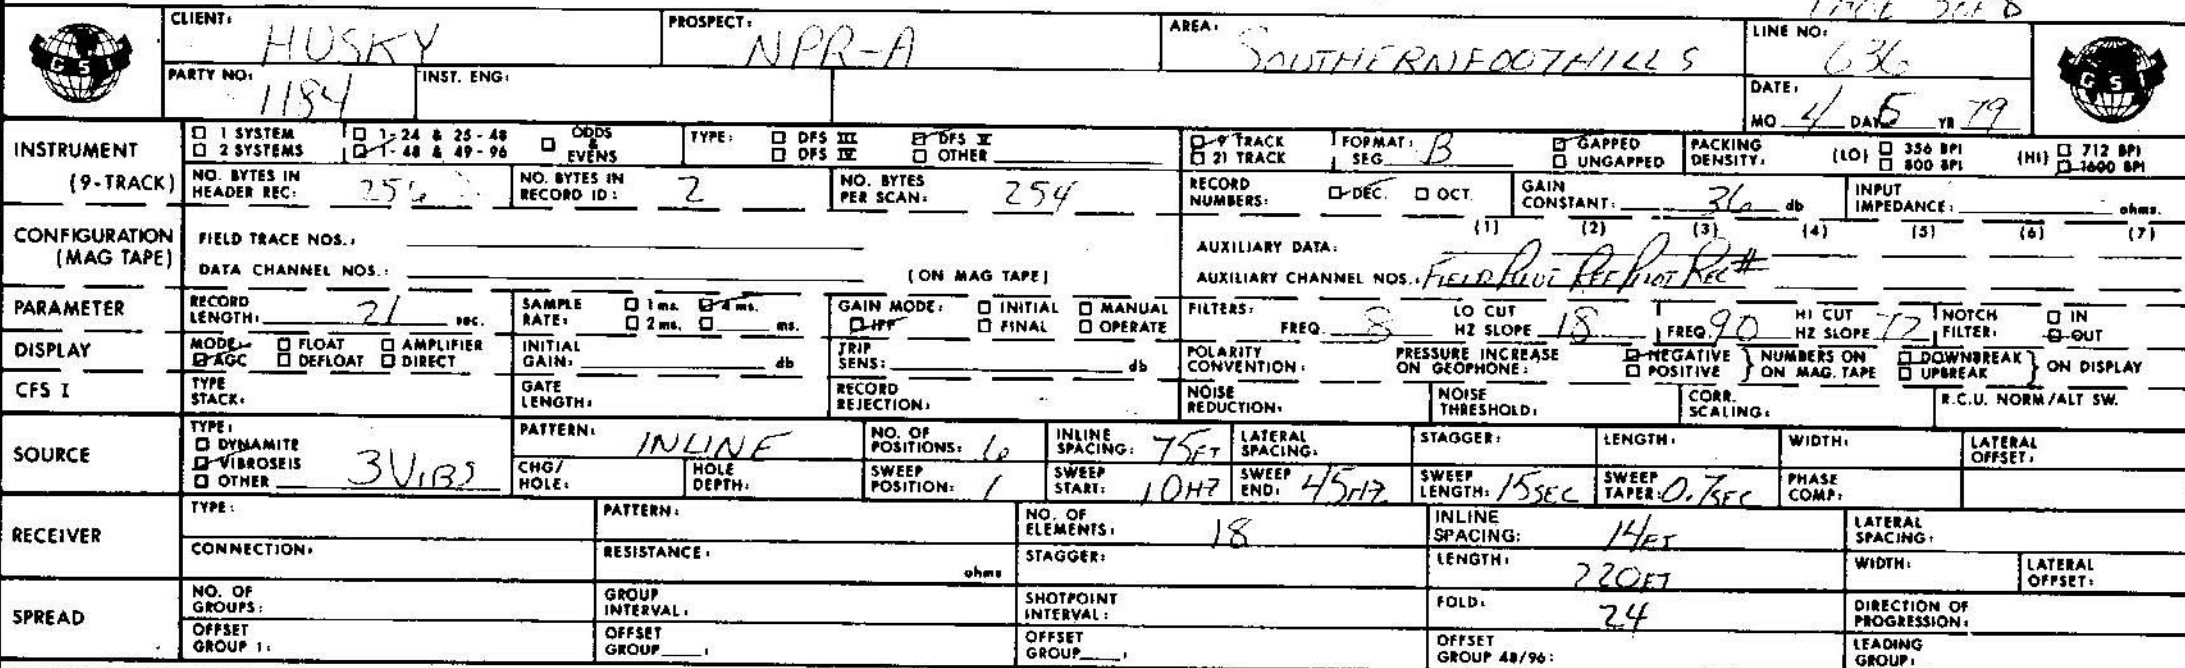 CLIENT: HUSKY PROSPECT: NPR-A AREA: SOUTHERN FOOTHILLS LINE NO: 636
GSI
GSI
PARTY NO: 1184 INST. ENG: DATE:
MO 4 DAY 5 YR 79
INSTRUMENT
(9-TRACK)
☐ 1 SYSTEM ☐ 1-24 & 25-48 ☐ ODDS & EVENS TYPE: ☐ DFS III ☑ DFS V ☑ 9 TRACK FORMAT: B ☑ GAPPED PACKING (LO) ☐ 356 BPI (HI) ☐ 712 BPI
☐ 2 SYSTEMS ☑ 1-48 & 49-96 ☐ DFS IV ☐ OTHER ☐ 21 TRACK SEG ☐ UNGAPPED DENSITY: ☐ 800 BPI ☑ 1600 BPI
NO. BYTES IN HEADER REC: 256 NO. BYTES IN RECORD ID: 2 NO. BYTES PER SCAN: 254 RECORD NUMBERS: ☑ DEC. ☐ OCT. GAIN CONSTANT: 36 db INPUT IMPEDANCE: ohms.
CONFIGURATION
(MAG TAPE)
FIELD TRACE NOS.: AUXILIARY DATA: (1) (2) (3) (4) (5) (6) (7)
DATA CHANNEL NOS.: (ON MAG TAPE) AUXILIARY CHANNEL NOS.: FIELD PILOT REF PILOT REC #
PARAMETER
RECORD LENGTH: 21 sec. SAMPLE RATE: ☐ 1 ms. ☑ 4 ms. ☐ 2 ms. ☐ ms. GAIN MODE: ☐ INITIAL ☐ MANUAL ☑ IFP ☐ FINAL ☐ OPERATE FILTERS: FREQ. 8 LO CUT HZ SLOPE 18 FREQ. 90 HI CUT HZ SLOPE 72 NOTCH FILTER: ☐ IN ☑ OUT
DISPLAY
MODE: ☐ FLOAT ☐ AMPLIFIER ☑ AGC ☐ DEFLOAT ☐ DIRECT INITIAL GAIN: db TRIP SENS: db POLARITY CONVENTION: PRESSURE INCREASE ON GEOPHONE: ☑ NEGATIVE ☐ POSITIVE } NUMBERS ON MAG. TAPE ☐ DOWNBREAK ☐ UPBREAK } ON DISPLAY
CFS I
TYPE STACK: GATE LENGTH: RECORD REJECTION: NOISE REDUCTION: NOISE THRESHOLD: CORR. SCALING: R.C.U. NORM/ALT SW.
SOURCE
TYPE: ☐ DYNAMITE ☑ VIBROSEIS ☐ OTHER 3 VIBS
PATTERN: INLINE NO. OF POSITIONS: 16 INLINE SPACING: 75 FT LATERAL SPACING: STAGGER: LENGTH: WIDTH: LATERAL OFFSET:
CHG/HOLE: HOLE DEPTH: SWEEP POSITION: 1 SWEEP START: 10HZ SWEEP END: 45HZ SWEEP LENGTH: 15SEC SWEEP TAPER: 0.7SEC PHASE COMP:
RECEIVER
TYPE: PATTERN: NO. OF ELEMENTS: 18 INLINE SPACING: 14FT LATERAL SPACING:
CONNECTION: RESISTANCE: ohms STAGGER: LENGTH: 220FT WIDTH: LATERAL OFFSET:
SPREAD
NO. OF GROUPS: GROUP INTERVAL: SHOTPOINT INTERVAL: FOLD: 24 DIRECTION OF PROGRESSION:
OFFSET GROUP 1: OFFSET GROUP ___: OFFSET GROUP ___: OFFSET GROUP 48/96: LEADING GROUP: